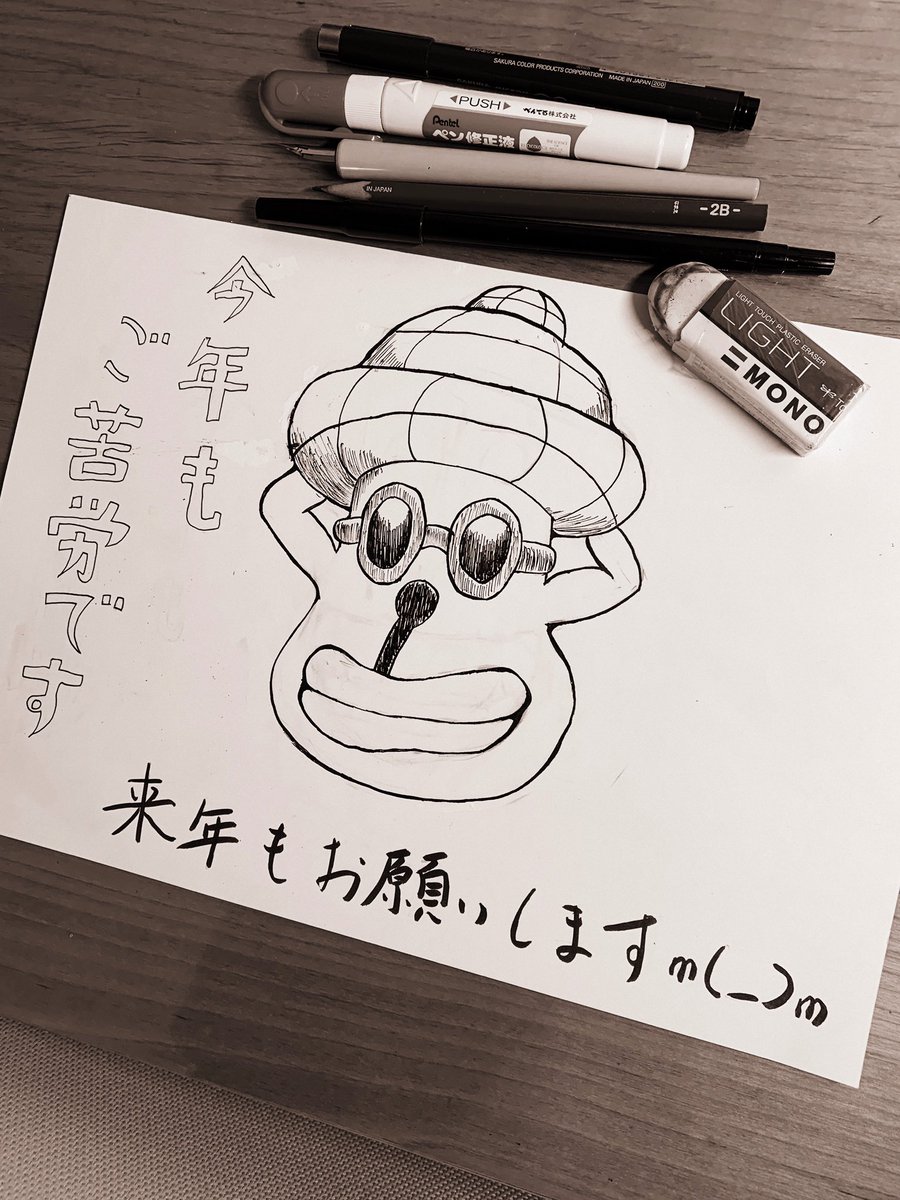 SAKURA COLOR PRODUCTS CORPORATION MADE IN JAPAN 200
PUSH ぺんてる株式会社
Pentel
ペン修正液
IN JAPAN
-2B-
LIGHT TOUCH PLASTIC ERASER
LIGHT
MONO
今年も
ご苦労です
来年もお願いしますm(_)m